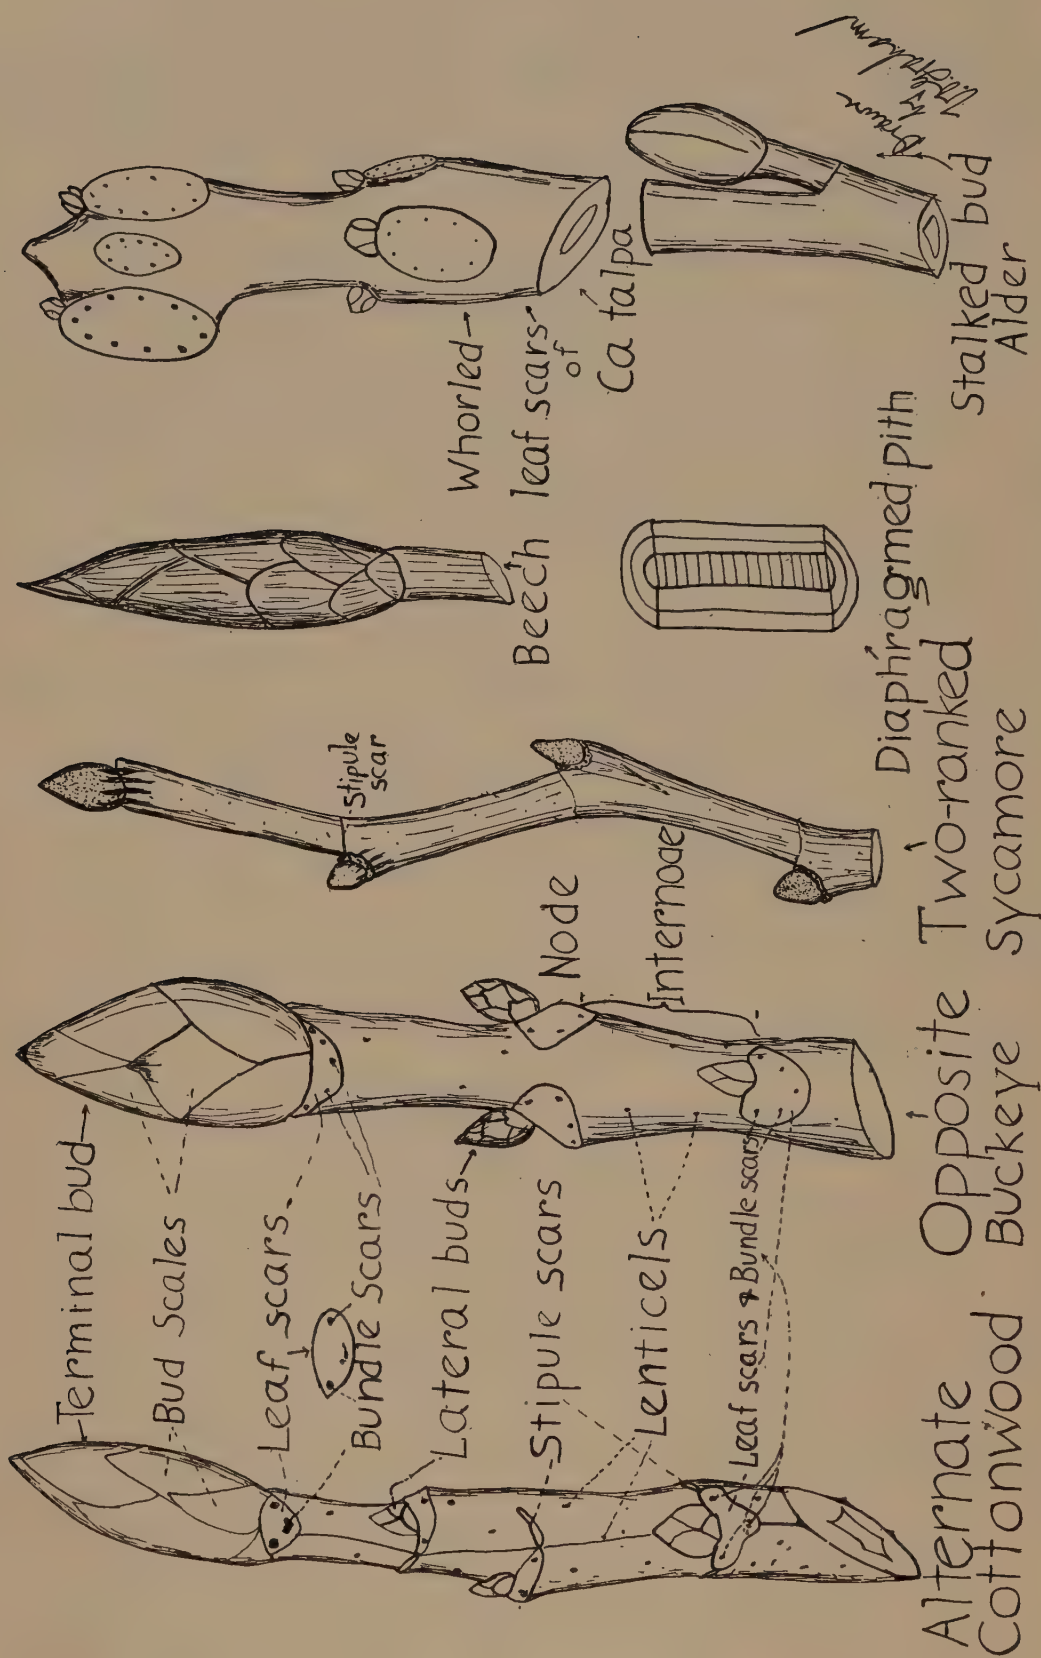 Terminal bud
Bud Scales
Leaf scars
Bundle Scars
Lateral buds
Stipule scars
Lenticels
Leaf scars & Bundle scars
Alternate
Cottonwood
Node
Internode
Opposite
Buckeye
Stipule
scar
Two-ranked
Sycamore
Beech
Diaphragmed pith
Whorled
leaf scars
of
Catalpa
Stalked bud
Alder
Drawn
by